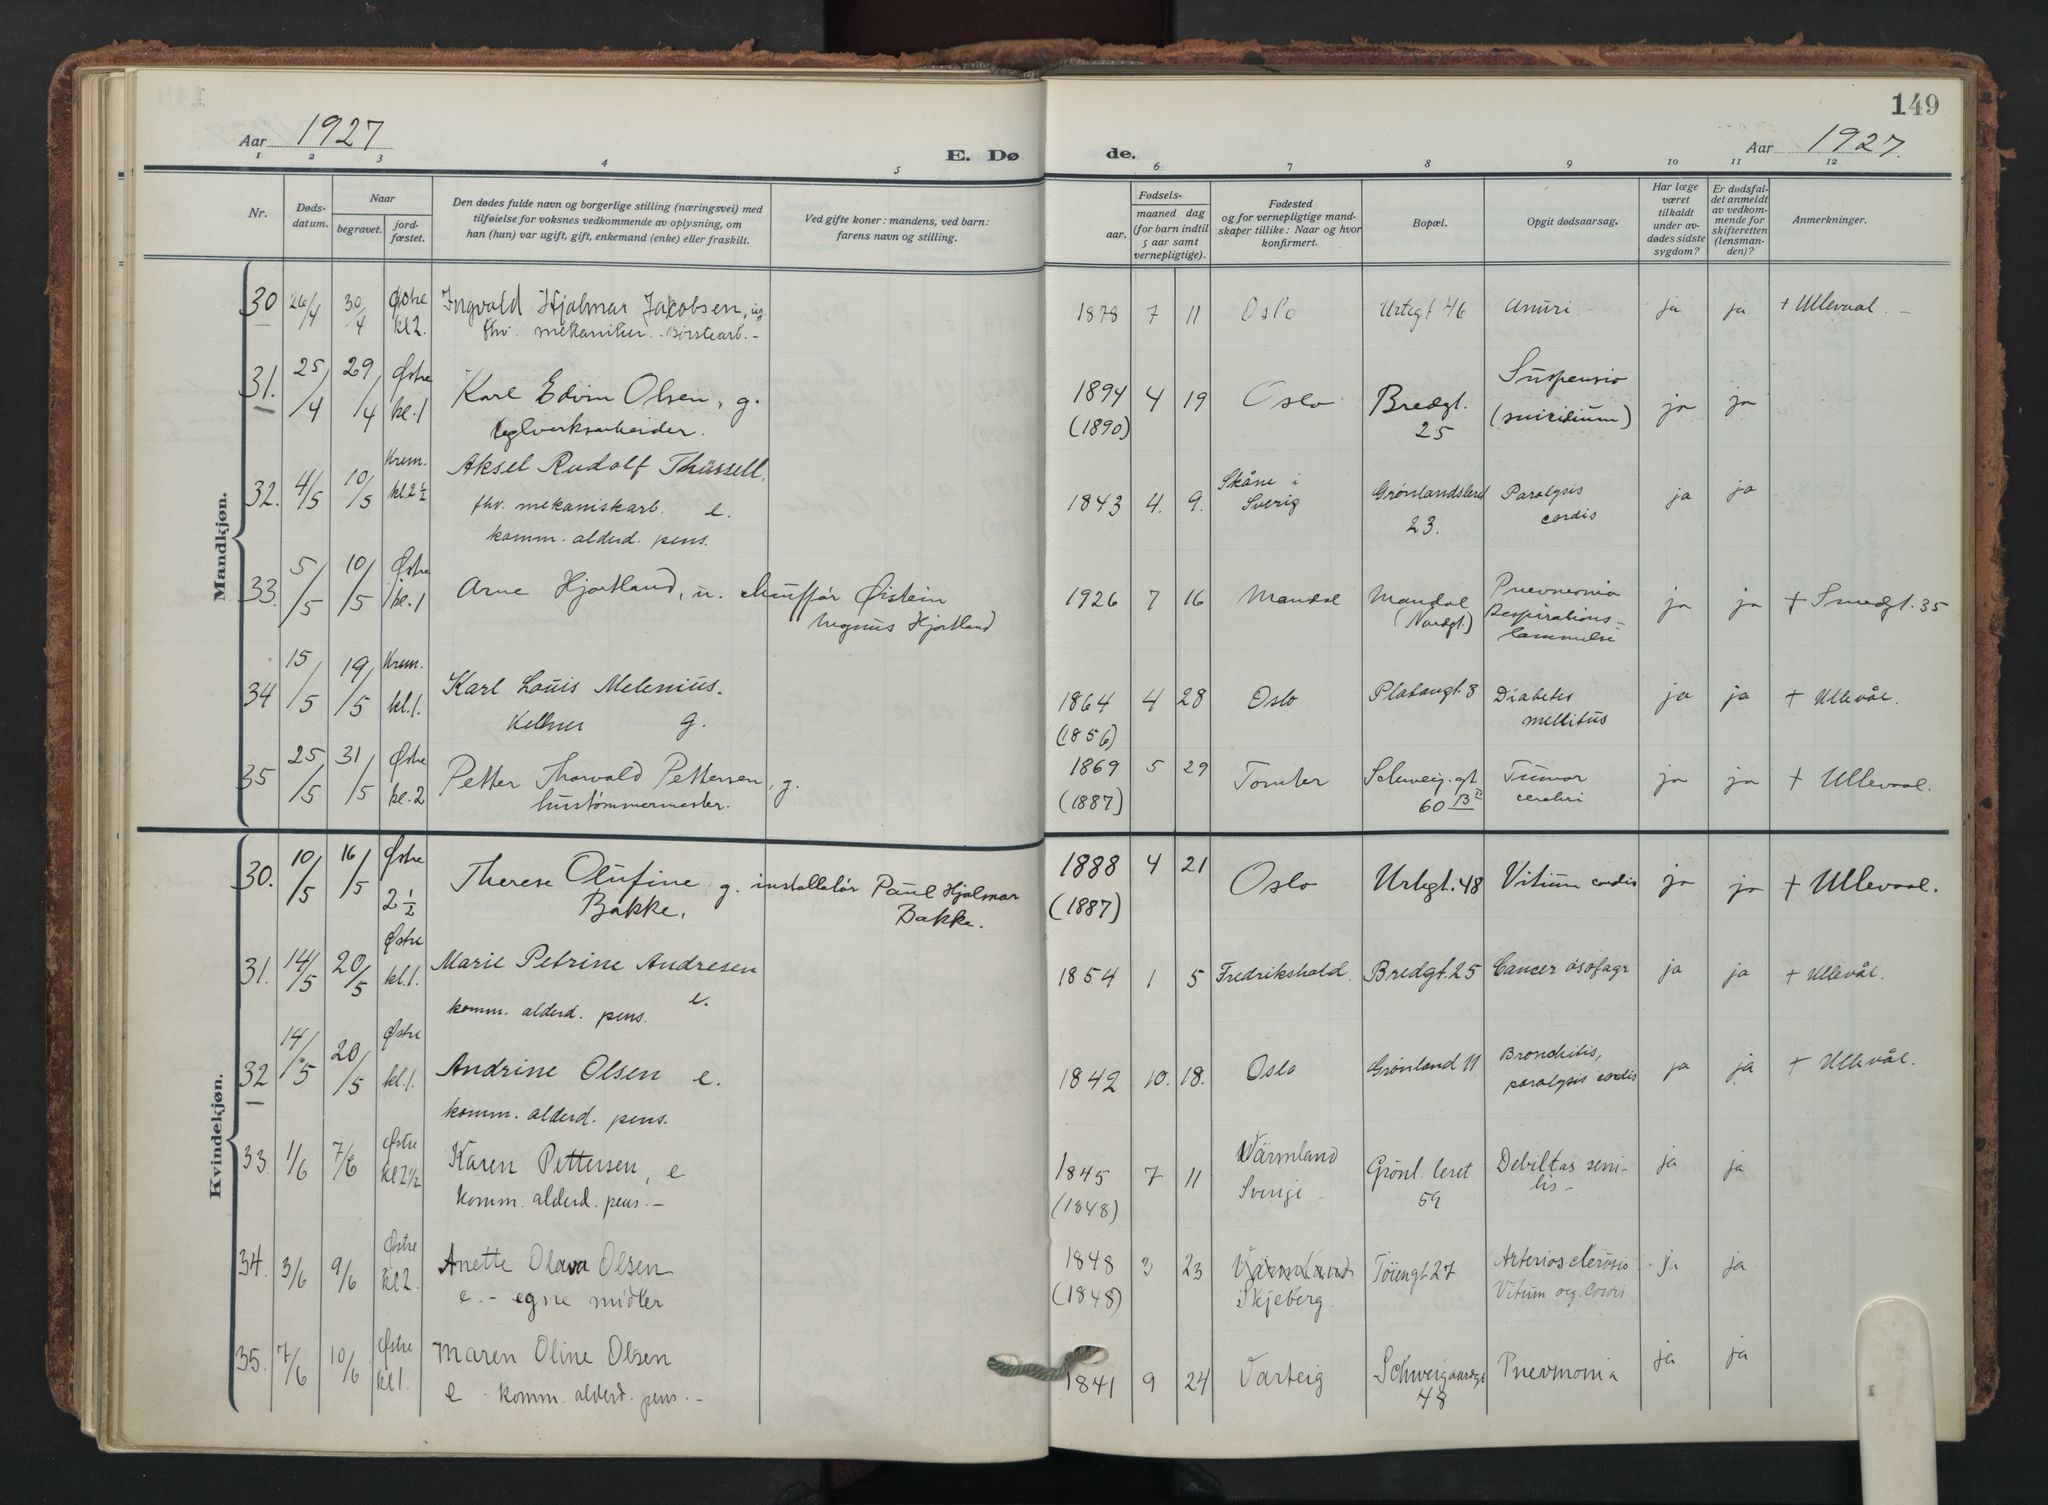 149
Aar 1927
E. Dø
de.
Aar 1927.
1 2 3 4 5 6 7 8 9 10 11 12
Nr.
Døds-
datum.
Naar
begravet.
jord-
fæstet.
Den dødes fulde navn og borgerlige stilling (næringsvei) med
tilføielse for voksnes vedkommende av oplysning, om
han (hun) var ugift, gift, enkemand (enke) eller fraskilt.
Ved gifte koner: mandens, ved barn:
farens navn og stilling.
Fødsels-
aar.
maaned dag
(for barn indtil
5 aar samt
vernepligtige).
Fødested
og for vernepligtige mand-
skaper tillike: Naar og hvor
konfirmert.
Bopæl.
Opgit dødsaarsag.
Har læge
været
tilkaldt
under av-
dødes sidste
sygdom?
Er dødsfal-
det anmeldt
av vedkom-
mende for
skifteretten
(lensman-
den)?
Anmerkninger.
Mandkjøn.
30 26/4 30/4 Østre kl 2. Ingvald Hjalmar Jakobsen, ug.
fhv. mekaniker - Børstearb. -
1878 7 11 Oslo Urtegt 46 Anuri - ja ja + Ullevaal. -
31. 25/4 29/4 Østre kl. 1 Karl Edvin Olsen, g.
teglverksarbeider.
1894 4 19 Oslo Bredgt. Suspensio ja ja
(1890) 25 (suicidium)
32. 4/5 10/5 Krem. kl. 2 ½ Aksel Rudolf Thüssell.
fhv. mekaniskarb. e.
komm. alderd. pens.
1843 4. 9. Skåne i Grønlandsleret Paralysis ja ja
Sverig 23. cordis
33. 5/5 10/5 Østre kl. 1 Arne Hjortland, u. chauffør Øistein
Magnus Hjortland
1926 7 16 Mandal Mandal Pnevmonia ja ja + Smedgt. 35
(Nordgt.) Respirations-
lammelse
34 15/5 19/5 Krem. kl. 1. Karl Louis Melenius.
Kellner g.
1864 4 28 Oslo Platougt. 8 Diabetes ja ja + Ullevål.
(1856) mellitus
35 25/5 31/5 Østre kl. 2 Petter Thorvald Pettersen, g.
hustømmermester.
1869 5 29 Tomter Schweig. gt Tumor ja ja + Ullevaal.
(1887) 60 B II cerebri
Kvindekjøn.
30. 10/5 16/5 Østre 2 ½ Therese Olufine g. installatør Paul Hjalmar
Bakke, Bakke.
1888 4 21 Oslo Urtegt. 48 Vitium cordis ja ja + Ullevaal.
(1887)
31. 14/5 20/5 Østre kl. 1. Marie Petrine Andresen
komm. alderd. pens. e.
1854 1 5 Fredrikshald. Bredgt. 25 Cancer øsofagr ja ja + Ullevål.
32 14/5 20/5 Østre kl. 1. Andrine Olsen e.
komm. alderd. pens.
1842 10. 18. Oslo Grønland 11 Bronchitis, ja ja + Ullevål.
paralysis cordis
33. 1/6 7/6 Østre kl 2½ Karen Pettersen, e
komm. alderd. pens. -
1845 7 11 Värmland Grønl. leret Debilitas seni- ja ja
(1848) Sverige - 59 lis -
34. 3/6 9/6 Østre kl 2. Anette Olava Olsen
e. - egne midler
1848 3 23 Värmland Tøiengt 27 Arteriosclerosis ja ja
(1848) Skjeberg. Vitium org. Cordis
35. 7/6 10/6 Østre kl 1. Maren Oline Olsen
e - komm. alderd. pens. -
1841 9 24 Varteig Schweigaardgt Pnevmonia ja ja
48